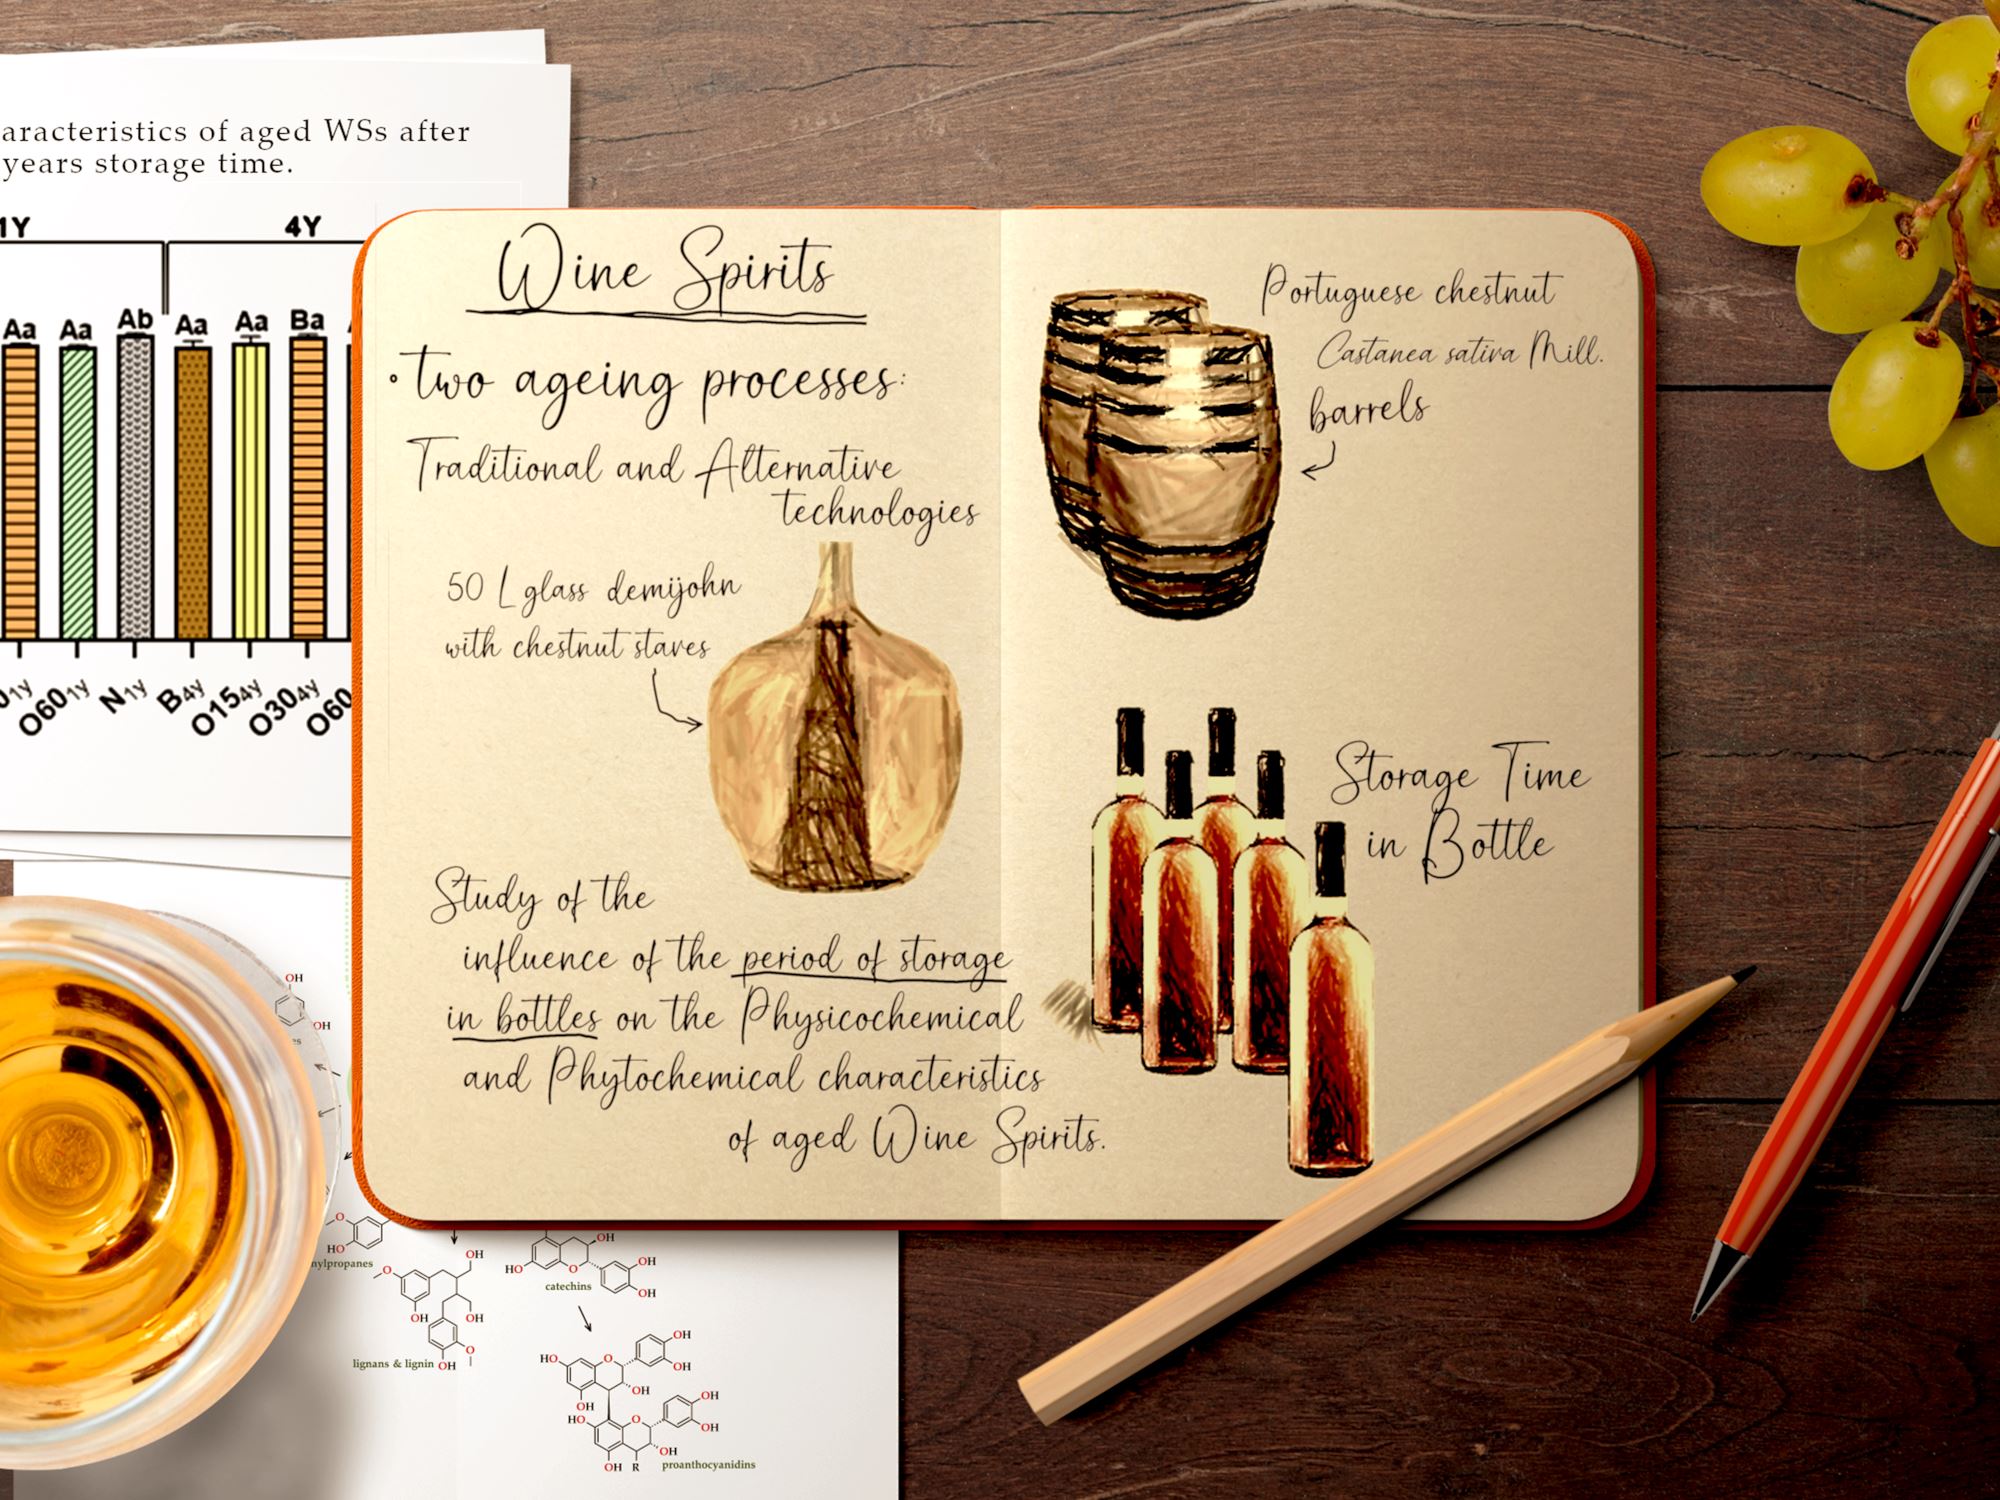 aracteristics of aged WSs after
years storage time.
1Y
4Y
Aa Aa Ab Aa Aa Ba
O60 1y
N 1y
B 4y
O15 4y
O30 4y
O60
Wine Spirits
• two ageing processes:
Traditional and Alternative
technologies
50 L glass demijohn
with chestnut staves
Study of the
influence of the period of storage
in bottles on the Physicochemical
and Phytochemical characteristics
of aged Wine Spirits.
Portuguese chestnut
Castanea sativa Mill.
barrels
Storage Time
in Bottle
OH
OH
O
HO
nylpropanes
OH
O
OH
OH
O
lignans & lignin OH
OH
HO
O
OH
OH
catechins
OH
HO
O
OH
OH
OH
HO
O
OH
OH
OH
OH R
proanthocyanidins